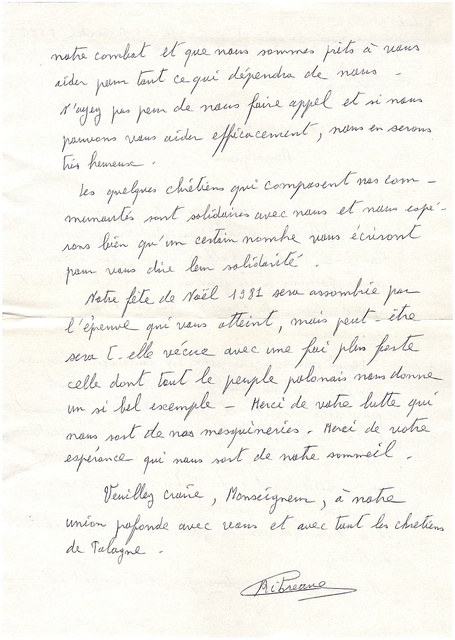 notre combat et que nous sommes prêts à vous
aider pour tout ce qui dépendra de nous -
N'ayez pas peur de nous faire appel et si nous
pouvons vous aider efficacement, nous en serons
très heureuse.
Les quelques chrétiens qui composent nos com-
munautés sont solidaires avec nous et nous espé-
rons bien qu'un certain nombre vous écriront
pour vous dire leur solidarité.
Notre fête de Noël 1981 sera assombrie par
l'épreuve qui vous atteint, mais peut-être
sera t-elle vécue avec une foi plus forte
celle dont tout le peuple polonais nous donne
un si bel exemple - Merci de votre lutte qui
nous sort de nos mesquineries. Merci de votre
espérance qui nous sort de notre sommeil.
Veuillez croire, Monseigneur, à notre
union profonde avec vous et avec tout les chrétiens
de Pologne -